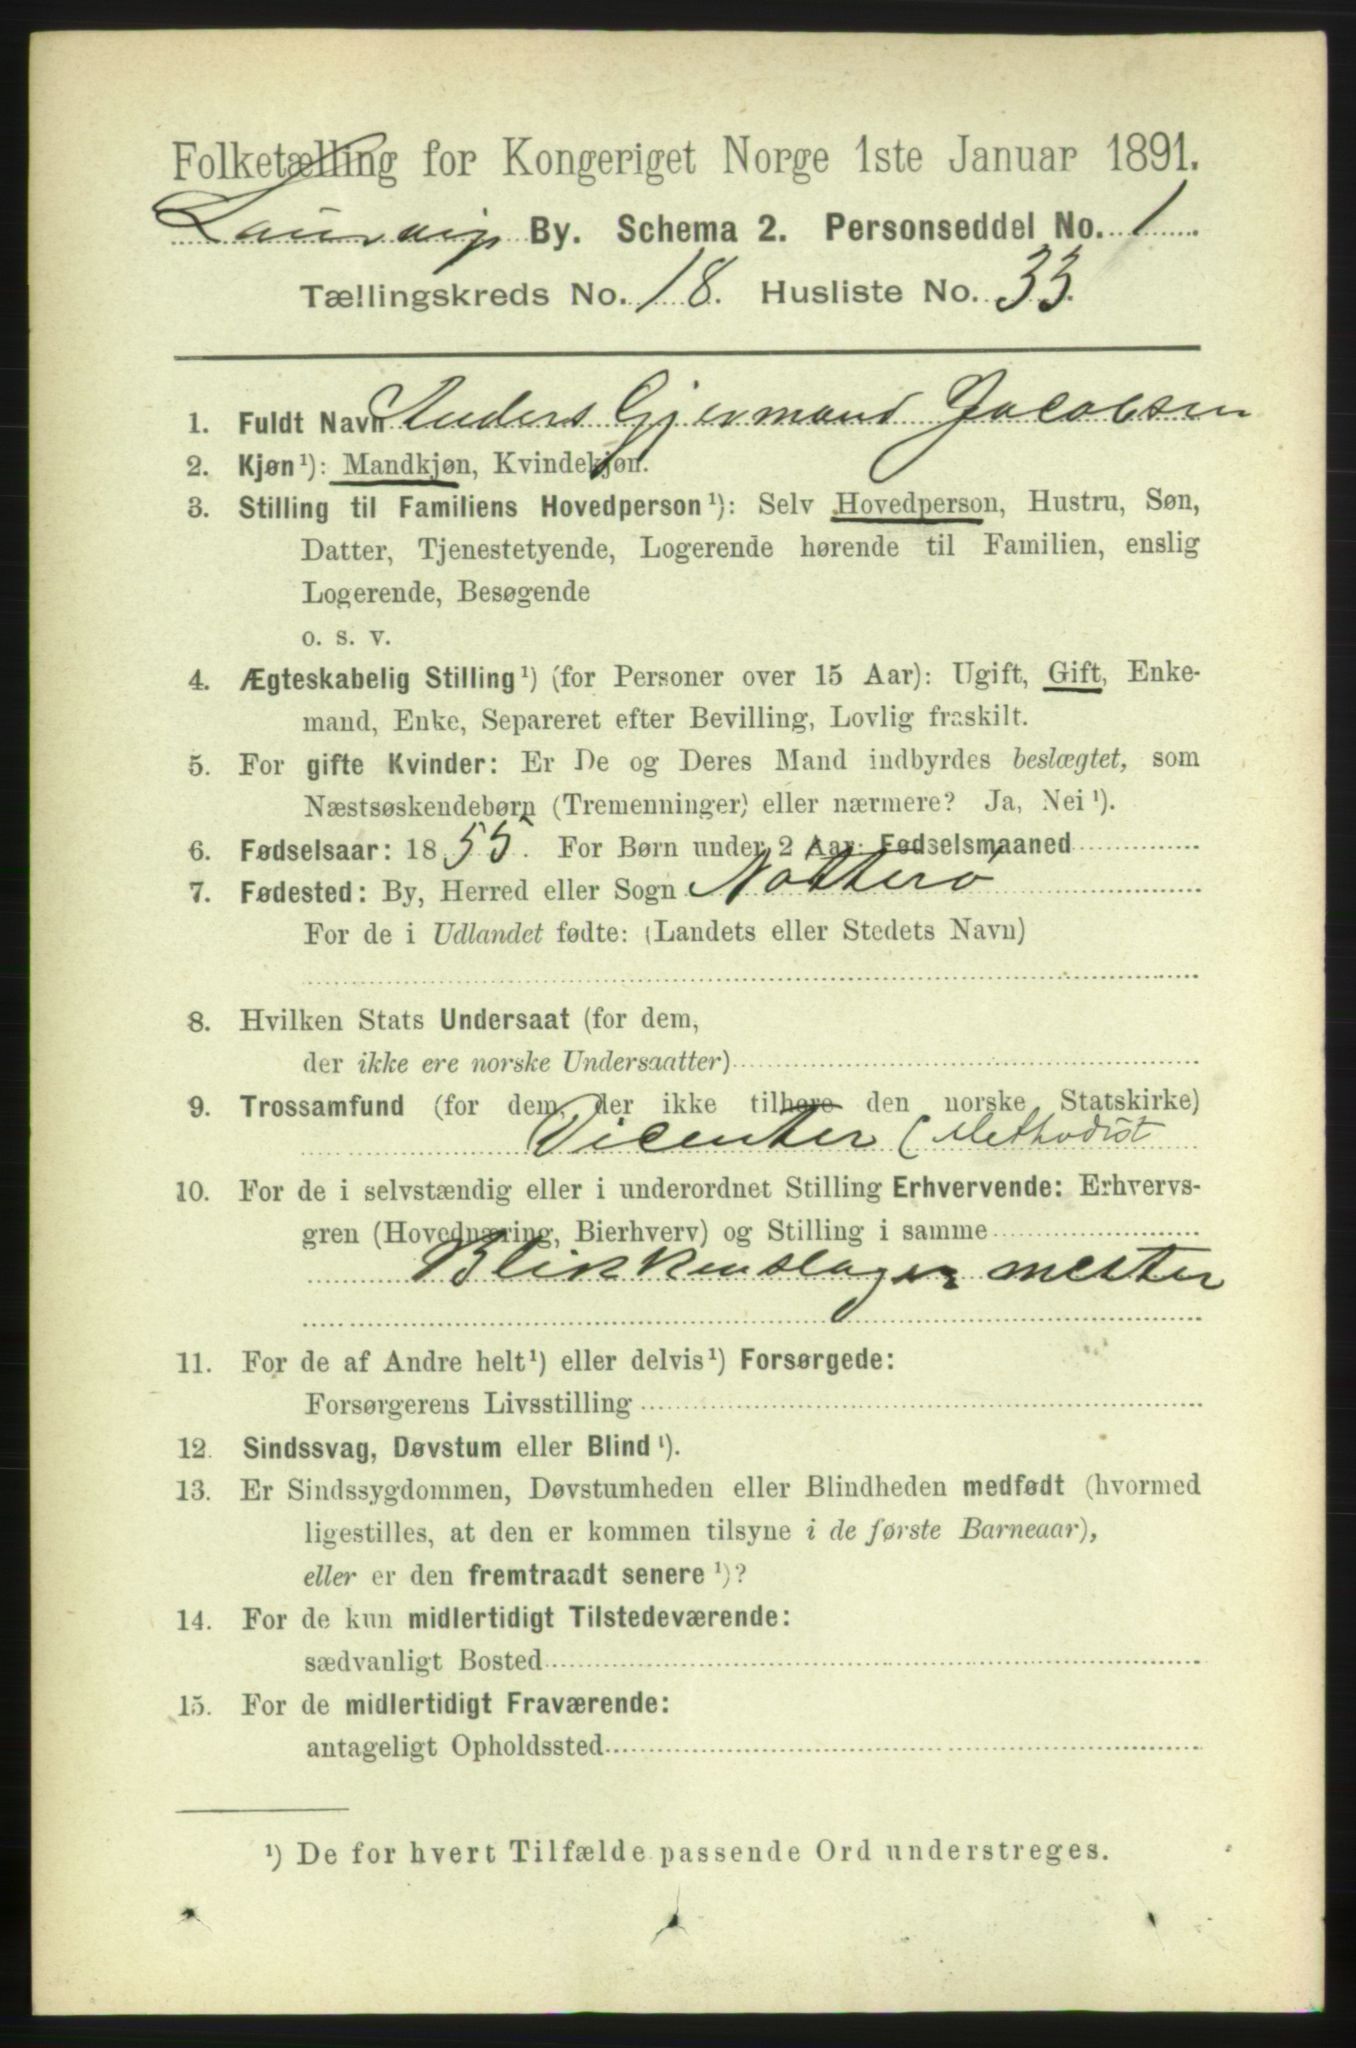 Folketælling for Kongeriget Norge 1ste Januar 1891.
Laurvig By. Schema 2. Personseddel No. 1
Tællingskreds No. 18. Husliste No. 33.
1. Fuldt Navn Anders Gjermand Jacobsen
2. Kjøn¹): Mandkjøn, Kvindekjøn.
3. Stilling til Familiens Hovedperson¹): Selv Hovedperson, Hustru, Søn,
Datter, Tjenestetyende, Logerende hørende til Familien, enslig
Logerende, Besøgende
o. s. v.
4. Ægteskabelig Stilling¹) (for Personer over 15 Aar): Ugift, Gift, Enke-
mand, Enke, Separeret efter Bevilling, Lovlig fraskilt.
5. For gifte Kvinder: Er De og Deres Mand indbyrdes beslægtet, som
Næstsøskendebørn (Tremenninger) eller nærmere? Ja, Nei¹).
6. Fødselsaar: 1855. For Børn under 2 Aar: Fødselsmaaned
7. Fødested: By, Herred eller Sogn Nötterö
For de i Udlandet fødte: (Landets eller Stedets Navn)
8. Hvilken Stats Undersaat (for dem,
der ikke ere norske Undersaatter)
9. Trossamfund (for dem, der ikke tilhøre den norske Statskirke)
Dicenter (Methodist
10. For de i selvstændig eller i underordnet Stilling Erhvervende: Erhvervs-
gren (Hovednæring, Bierhverv) og Stilling i samme
Blikkenslager mester
11. For de af Andre helt¹) eller delvis¹) Forsørgede:
Forsørgerens Livsstilling
12. Sindssvag, Døvstum eller Blind¹).
13. Er Sindssygdommen, Døvstumheden eller Blindheden medfødt (hvormed
ligestilles, at den er kommen tilsyne i de første Barneaar),
eller er den fremtraadt senere¹)?
14. For de kun midlertidigt Tilstedeværende:
sædvanligt Bosted
15. For de midlertidigt Fraværende:
antageligt Opholdssted
¹) De for hvert Tilfælde passende Ord understreges.